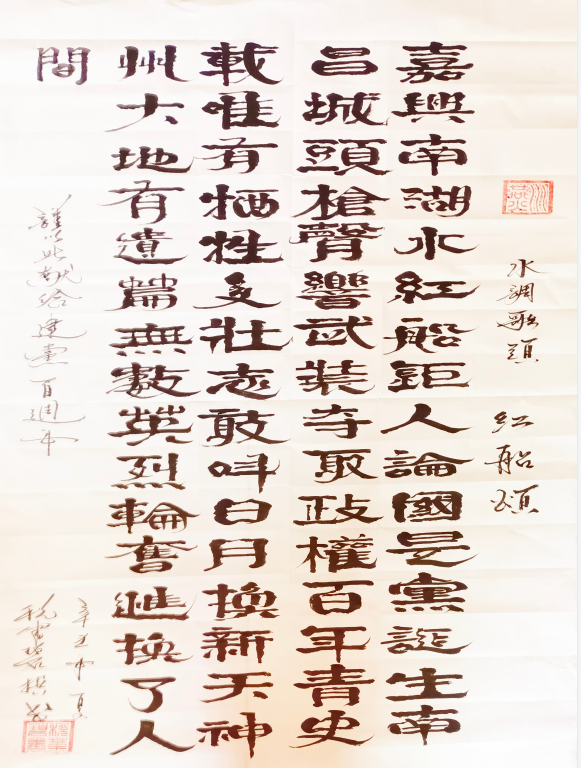 水調歌頭 紅船頌
嘉興南湖水紅船鉅人論國是黨誕生南
昌城頭槍聲響武装夺取政權百年青史
載唯有牺牲多壯志敢叫日月換新天神
州大地有遺篇無数英烈輪奮進換了人
間
謹以此献给建黨百週年
辛丑中夏